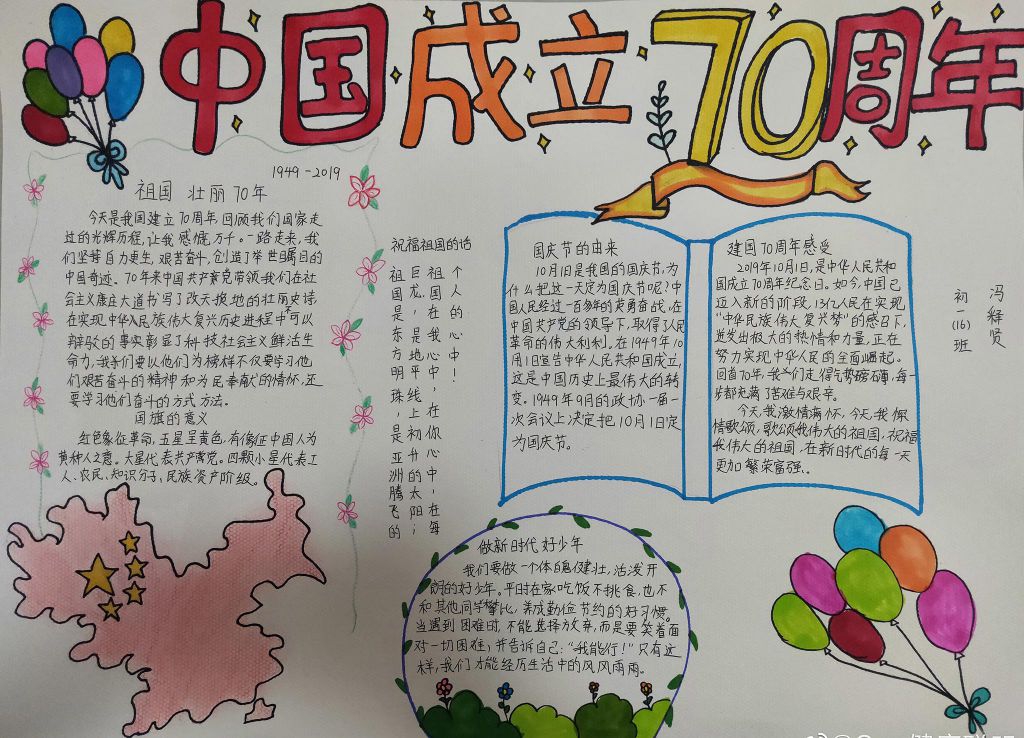 中国成立70周年
1949-2019
祖国 壮丽 70年
今天是我国建立70周年回顾我们国家走
过的光辉历程,让我感慨万千。一路走来,我
们坚持自力更生,艰苦奋斗,创造了举世瞩目的
中国奇迹。70年来中国共产党带领我们在社
会主义康庄大道书写了改天换地的壮丽史诗
在实现中华人民族伟大复兴历史进程中可以
辩驳的事实彰显了科技社会主义鲜活生
命力,我们要以他们为榜样不仅要学习他
们艰苦奋斗的精神和为民奉献的情怀,还
要学习他们奋斗的方式方法。
国旗的意义
红色象征革命,五星呈黄色,有象征中国人为
黄种人之意。大星代表共产党。四颗小星代表工
人、农民、知识分子、民族资产阶级。
祝福祖国的话
个人的心中!
祖国,在我心中,在你心中,在每
祖国是地平线上初升的太阳;
巨龙,是东方明珠,是亚洲腾飞的
国庆节的由来
10月1日是我国的国庆节,为
什么把这一天定为国庆节呢?中
国人民经过一百多年的英勇奋战,在
中国共产党的领导下,取得了人民
革命的伟大利利。在1949年10
月1日宣告中华人民共和国成立,
这是中国历史上最伟大的转
变。1949年9月的政协一届一
次会议上决定把10月1日定
为国庆节。
建国70周年感受
2019年10月1日,是中华人民共和
国成立70周年纪念日。如今,中国已
迈入新的阶段,13亿人民在实现
"中华民族伟大复兴梦"的感召下,
迸发出极大的热情和力量,正在
努力实现中华人民的全面崛起。
回首70年,我们走得气势磅礴,每一
步都充满了苦难与艰辛。
今天,我激情满怀,今天,我倾
情歌颂,歌颂我伟大的祖国,祝福
我伟大的祖国,在新时代的每一天
更加繁荣富强..
冯释贤
初一(16)班
做新时代好少年
我们要做一个体魄健壮,活泼开
朗的好少年。平时在家吃饭不挑食,也不
和其他同学攀比,养成勤俭节约的好习惯。
当遇到困难时,不能选择放弃,而是要笑着面
对一切困难,并告诉自己:"我能行!"只有这
样,我们才能经历生活中的风风雨雨。